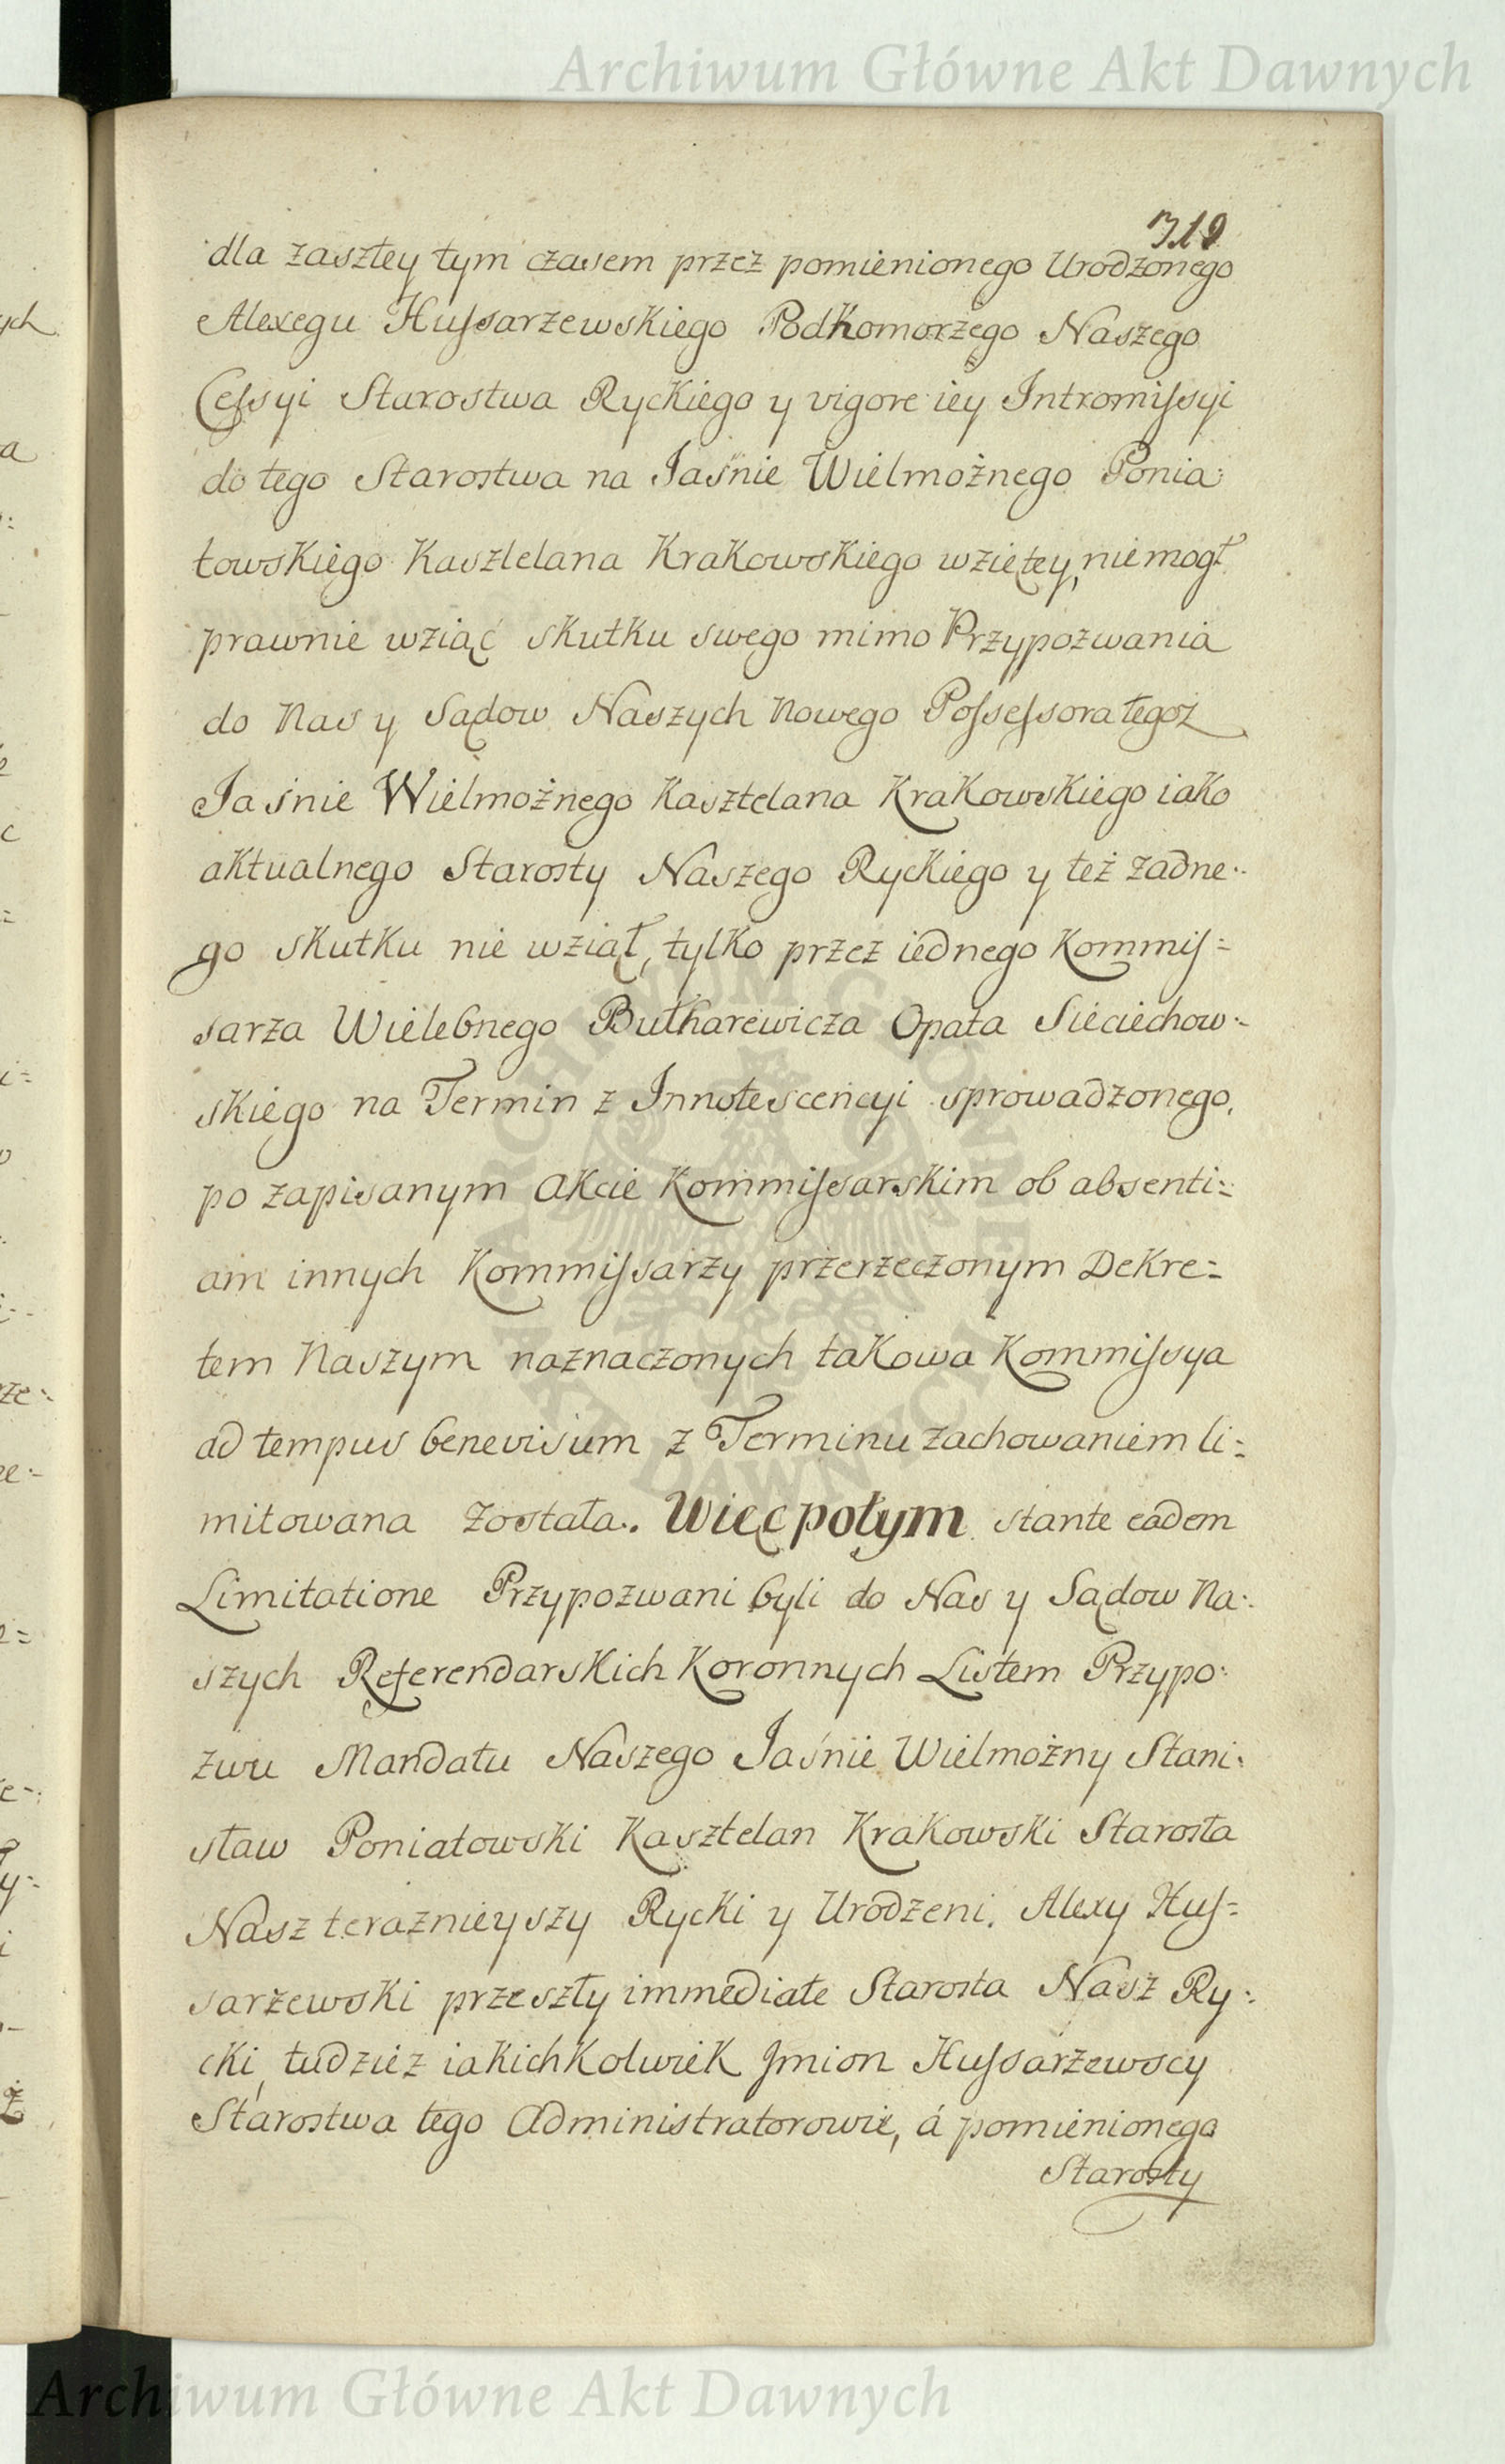 Archiwum Główne Akt Dawnych
319
dla zaszłey tym czasem przez pomienionego Urodzonego
Alexegu Hussarzewskiego Podkomorzego Naszego
Cessyi Starostwa Ryckiego y vigore iey Intromissyi
do tego Starostwa na Jaśnie Wielmożnego Ponia:
towskiego Kasztelana Krakowskiego wziętey, nie mogł
prawnie wziąć skutku swego mimo Przypozwania
do Nas y Sądow Naszych Nowego Possessora tegoż
Jaśnie Wielmożnego Kasztelana Krakowskiego iako
aktualnego Starosty Naszego Ryckiego y też żadne:
go skutku nie wziął, tylko przez iednego Kommis=
sarza Wielebnego Butharewicza Opata Sieciechow:
skiego na Termin z Innotescencyi sprowadzonego,
po zapisanym Akcie Kommissarskim ob absenti=
am innych Kommissarzy przerzeczonym Dekre=
tem Naszym naznaczonych takowa Kommissya
ad tempus benevisum z Terminu zachowaniem li=
mitowana została. Więc potym stante eadem
Limitatione Przypozwani byli do Nas y Sądow Na:
szych Referendarskich Koronnych Listem Przypo:
zwu Mandatu Naszego Jaśnie Wielmożny Stani:
sław Poniatowski Kasztelan Krakowski Starosta
Nasz teraznieyszy Rycki y Urodzeni. Alexy Hus=
sarzewski przeszły immediate Starosta Nasz Ry:
cki, tudziez iakichkolwiek Jmion Hussarzewscy
Starostwa tego Administratorowie, á pomienionego
Starosty
Archiwum Główne Akt Dawnych